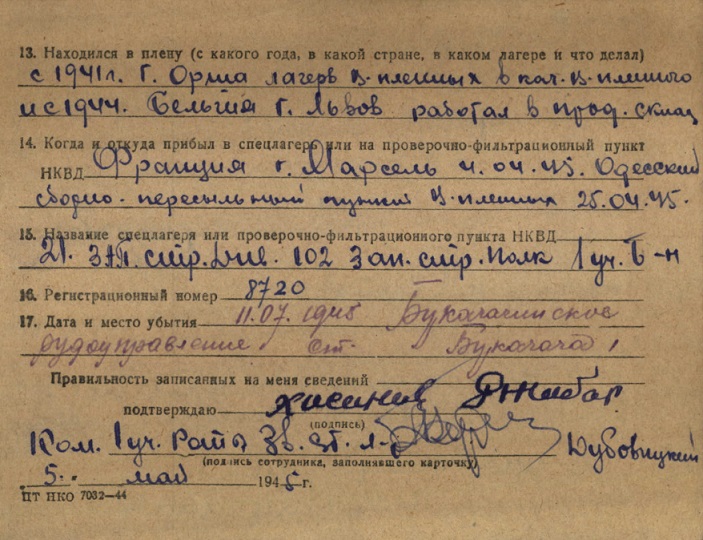 13. Находился в плену (с какого года, в какой стране, в каком лагере и что делал)
с 1941 г. г. Орша лагерь в-пленных в кач. в-пленного
и с 1944. Бельгия г. Львов работал в прод. склад
14. Когда и откуда прибыл в спецлагерь или на проверочно-фильтрационный пункт
НКВД Франция г. Марсель 4.04.45. Одесский
сборно-пересыльный пункт в-пленных 25.04.45.
15. Название спецлагеря или проверочно-фильтрационного пункта НКВД
21. зап. стр. див. 102 зап. стр. полк 1 уч. б-н
16. Регистрационный номер 8720
17. Дата и место убытия 11.07.1945 Букачачинское
рудоуправление ст. Букачача
Правильность записанных на меня сведений
подтверждаю Хасанов Джабар
(подпись)
Ком. 1 уч. роты Зв. ст. л-т Дубовицкий
(подпись сотрудника, заполнявшего карточку)
5. май 1945 г.
ЦТ НКО 7032—44